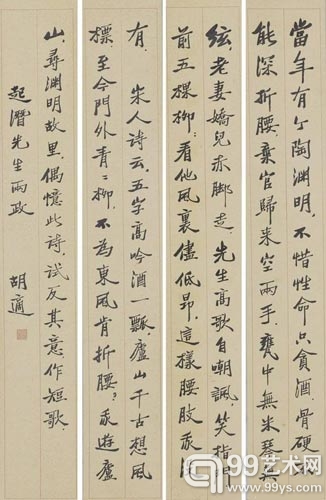 當年有个陶淵明，不惜性命只貪酒。骨硬不
能深折腰，棄官歸來空兩手。甕中無米琴無
絃，老妻嬌兒赤脚走。先生高歌自嘲諷，笑指
前五棵柳：看他風裏儘低昂，這樣腰肢我沒
有。 宋人诗云，五字高吟酒一瓢，廬山千古想風
標，至今門外青〻柳，不為東風肯折腰？我遊廬
山尋淵明故里，偶憶此诗，试反其意作短歌。
起潛先生兩政
胡適
99艺术网
www.99ys.com